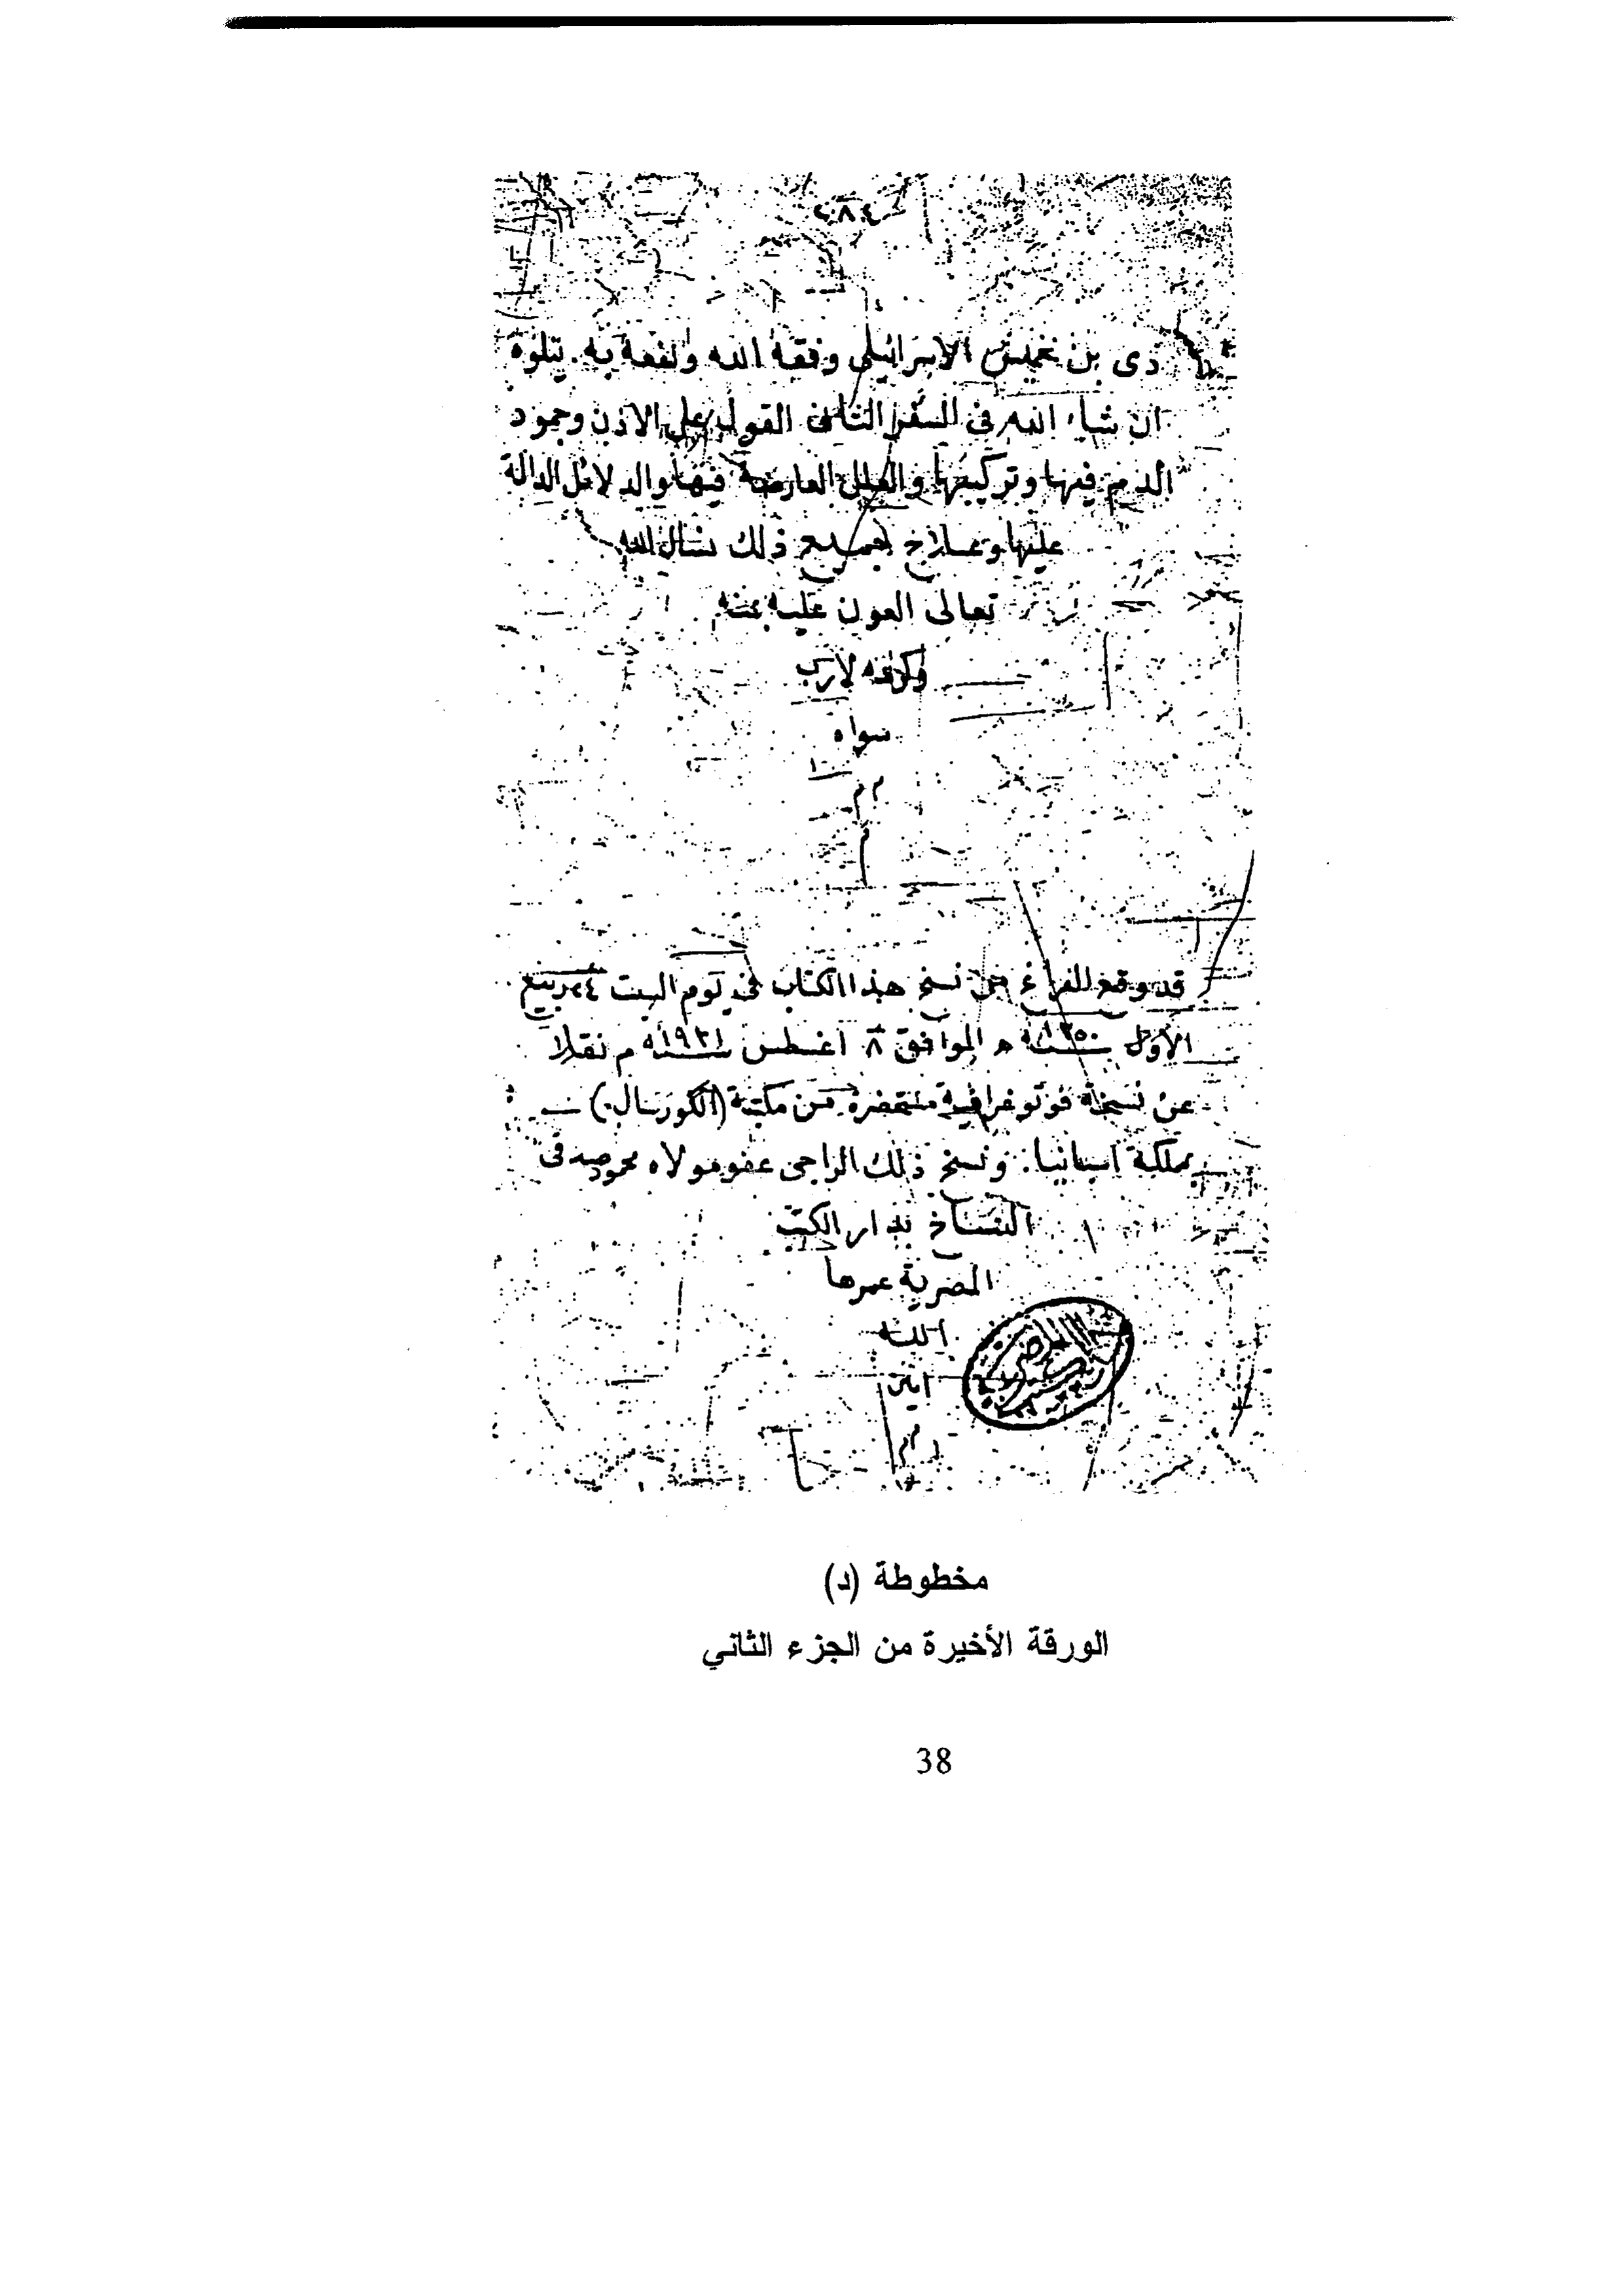 ٢٨٤
دى بن خميس الاسرائيلى وفقه الله ونفعه به. يتلوه
ان شاء الله فى السفر الثالث القول على الاذن وجمود
الدم فيها وتركيبها والعلل العارضة فيها والدلائل الدالة
عليها وعلاج جميع ذلك نسأل الله
تعالى العون عليه بمنه
وكرمه لا رب
سواه
قد وقع الفراغ من نسخ هذا الكتاب فى يوم السبت ٢٤ ربيع
الأول سنة ١٣٥٠ ه الموافق ٨ اغسطس سنة ١٩٣١ م نقلا
عن نسخة فوتوغرافية مستحضرة من مكتبة (الكوريال)
بمملكة اسبانيا. ونسخ ذلك الراجى عفو مولاه محمود صدقى
النساخ بدار الكتب
المصرية عمرها
الله
امين
مخطوطة (د)
الورقة الأخيرة من الجزء الثاني
38